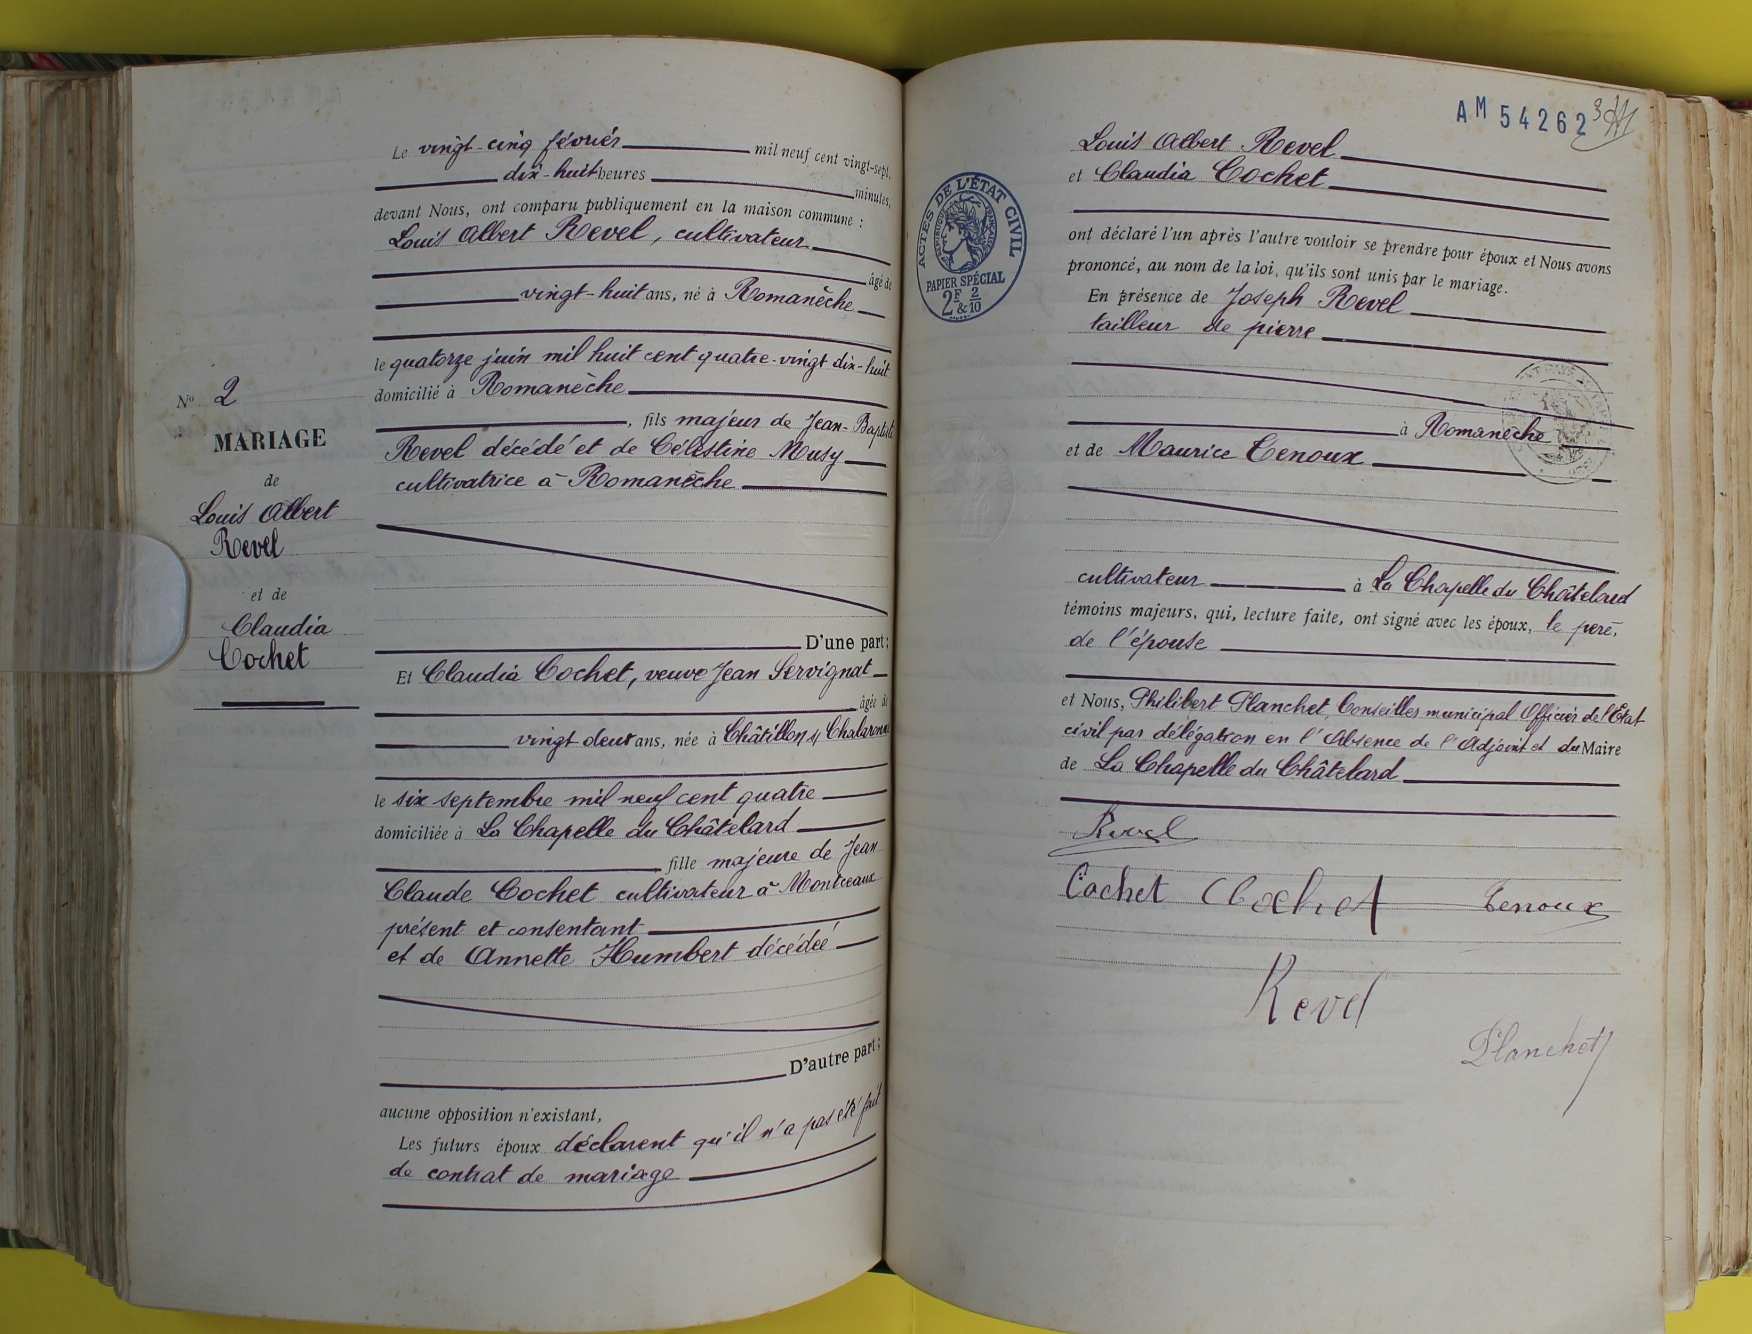 Le vingt-cinq février mil neuf cent vingt-sept,
dix-huit heures minutes,
devant Nous, ont comparu publiquement en la maison commune :
Louis Albert Revel, cultivateur
âgé de
vingt-huit ans, né à Romanèche
le quatorze juin mil huit cent quatre-vingt dix-huit
domicilié à Romanèche
, fils majeur de Jean-Baptiste
Revel décédé et de Célestine Musy
cultivatrice à Romanèche
D'une part ;
Et Claudia Cochet, veuve Jean Servignat
âgée de
vingt deux ans, née à Châtillon s/ Chalaronne
le six septembre mil neuf cent quatre
domiciliée à La Chapelle du Châtelard
fille majeure de Jean
Claude Cochet cultivateur à Montceaux
présent et consentant
et de Annette Humbert décédée
D'autre part ;
aucune opposition n'existant,
Les futurs époux déclarent qu'il n'a pas été fait
de contrat de mariage
No 2
MARIAGE
de
Louis Albert
Revel
et de
Claudia
Cochet
AM 54262
ACTES DE L'ÉTAT CIVIL
PAPIER SPÉCIAL
2F & 2/10
Louis Albert Revel
et Claudia Cochet
ont déclaré l'un après l'autre vouloir se prendre pour époux et Nous avons
prononcé, au nom de la loi, qu'ils sont unis par le mariage.
En présence de Joseph Revel
tailleur de pierre
à Romanèche
et de Maurice Tenoux
cultivateur à La Chapelle du Châtelard
témoins majeurs, qui, lecture faite, ont signé avec les époux, le père,
de l'épouse
et Nous, Philibert Planchet, Conseiller municipal Officier de l'Etat
civil par délégation en l'Absence de l'Adjoint et du Maire
de La Chapelle du Châtelard
Revel
Cochet Cochet Tenoux
Revel
Planchet